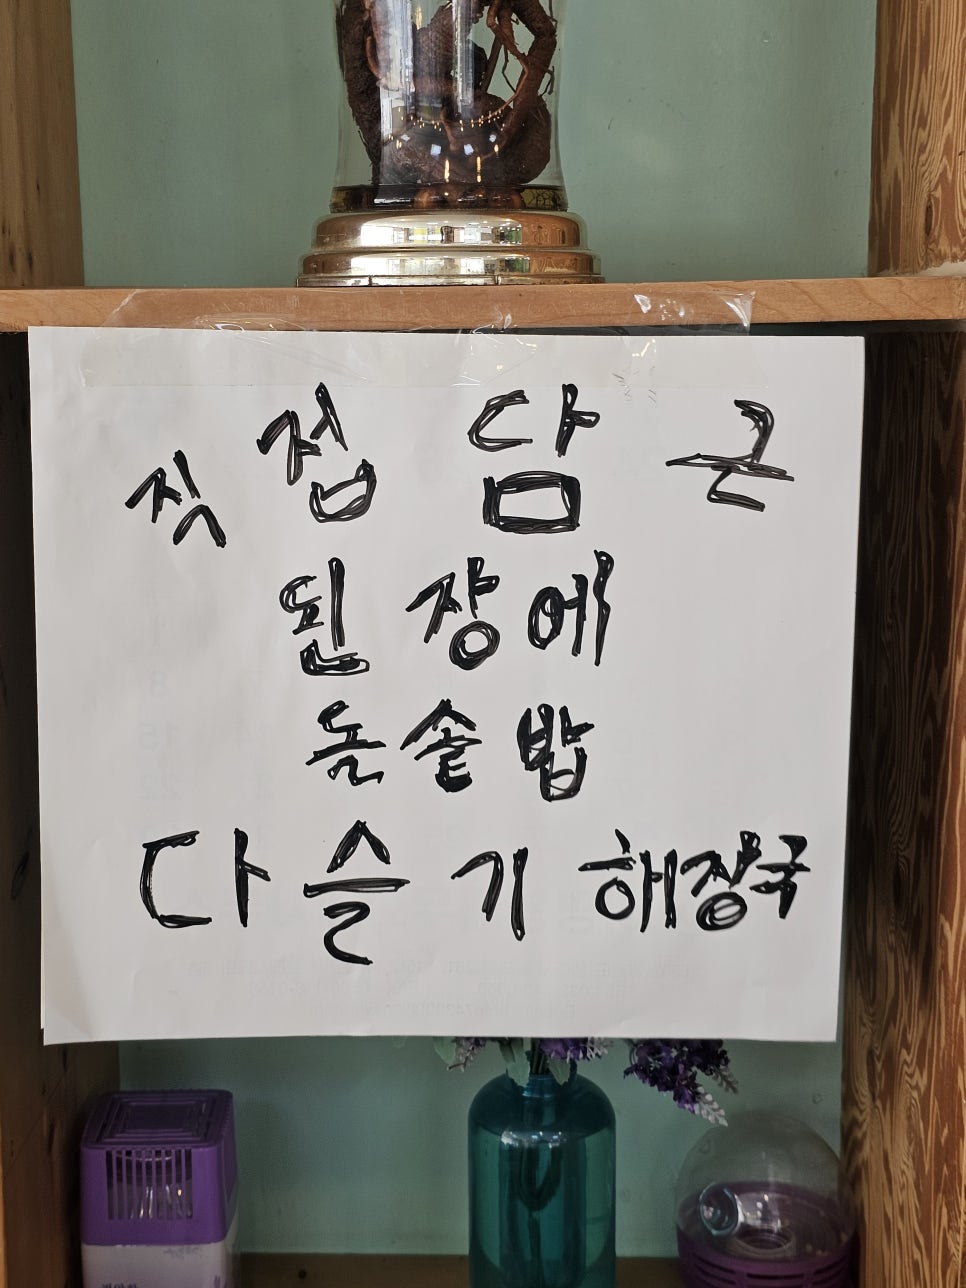 직접 담근
된장에
돌솥밥
다슬기 해장국